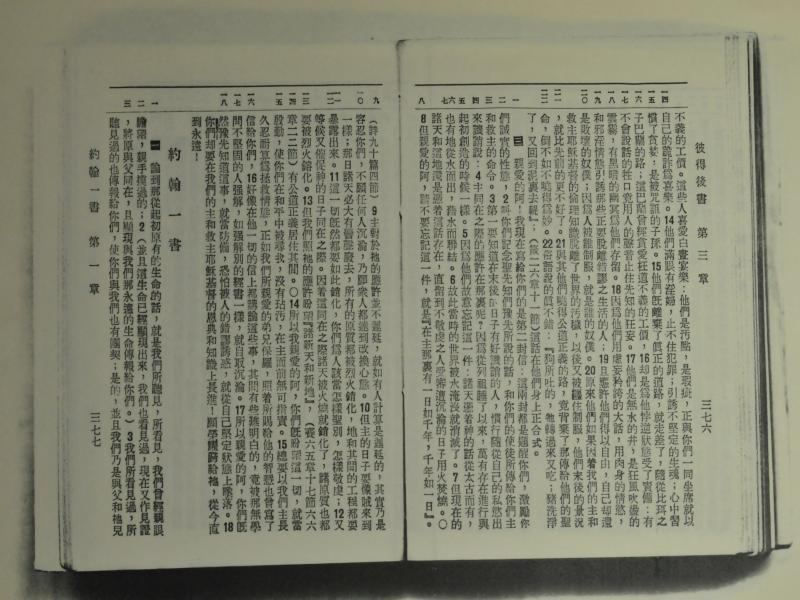 彼得後書 第三章
三七六
不義的工價。這些人喜愛白晝宴樂:他們是污點,是瑕疵,正與你們一同坐席就以
自己的詭詐爲喜樂。14他們滿眼有淫婦,止不住犯罪;引誘不堅定的生魂;心中習
慣了貪婪;是被咒詛的子孫。15他們旣離棄了眞正的道路,就走差了,隨從比珥之
子巴蘭的路;這巴蘭曾經貪愛枉道不義的工價;16却是爲他悖逆狀態受了責備:有
不會說話的牲口竟用人的聲音止住先知的狂妄。17他們是無水的井,是狂風吹盪的
雲霧,有黑暗的幽冥爲他們存留。18因爲他們用虛妄矜誇的大話,用肉身的情慾,
和邪淫情慾引誘那些正要脫離錯謬之生活的人;19且應許他們得以自由,自己却還
是敗壞的奴僕;因爲人被誰制服,就是誰的奴僕。20原來他們如果因着我們的主和
救主耶穌基督的倫理知識脫離了世界的污穢,以後又被纏住制服,他們末後的景況
,就比先前的更不好了。21與其他們曉得公道正義的路,竟背棄了那傳給他們的聖
命,倒不如不曉得爲妙。22俗語說的眞不錯:『狗所吐的,牠轉過來又吃;豬洗淨
了,又回到泥裏去輥;』(箴二六章十一節)這話在他們身上正合式。
三 親愛的阿,我現在寫給你們的是第二封信:這兩封都是題醒你們,激勵你
們誠實的性態,2叫你們記念聖先知們豫先所說的話,和你們的使徒所傳給你們主
和救主的命令。3第一要知道在末後的日子有好譏誚的人,慣行隨從自己的私慾出
來譏誚說:4主同在之際的應許在那裏呢?因爲從列祖睡了以來,萬有存在進行與
起初創造的時候一樣。5因爲他們故意忘記這一件:諸天憑着神的話從太古而有,
也有地從水而出,藉水而聯結。6故此當時的世界被水淹沒就消滅了。7但現在的
諸天和這地還是憑着這話存在,直留到不敬虔之人受審遭沉淪的日子用火焚燒。○
8但親愛的阿,請不要忘記這一件,就是『在主那裏有一日如千年,千年如一日』。
(詩九十篇四節)9主對於祂的應許並不遲延,就如有人計算是遲延的,其實乃是
容忍你們,不願任何人沉淪,乃願衆人都達到改換心態。10但主的日子要像賊來到
一樣;那日諸天必大有響聲廢去,所有的原質都被烈火銷化,地和其間的工程都要
是露出來。11這一切旣然都要如此銷化,你們爲人該當怎樣聖別,怎樣敬虔;12又
等候又催促神的日子同在之際。因着這同在之際諸天被火燒就銷化了,諸原質也都
要被烈火銷化。13但我們照祂的應許盼望『諸新天和新地』,(賽六五章十七節六六
章二二節)有公道正義居住其間。○14所以我親愛的阿,你們旣盼望這一切,就當
殷勤,使你們在和平中被尋找,沒有玷污,在主面前無可指責。15總要以我們主長
久忍耐算爲拯救情態,正如我們所親愛的弟兄保羅,照着所賜給他的智慧也曾寫了
信給你們,16好像在他一切的信上都講論這些事,其間有些難明白的,竟被那無學
問不堅固的人强解,如同解別的經書一樣,就自取沉淪。17所以親愛的阿,你們旣
然豫先知道這事,就當防備,恐怕被人的錯謬誘惑,就從自己堅定狀態上墜落。18
你們却要在我們的主和救主耶穌基督的恩典和知識上長進!願榮耀歸給祂,從今直
到永遠!
約翰一書
一 論到那從起初原有的生命的話,就是我們所聽見,所看見,我們曾經親眼
諦視,親手摸過的;2(並且這生命已經顯現出來,我們也看見過,現在又作見證
,將原與父同在,且顯現與我們那永遠的生命傳報給你們。)3我們所看見過,所
聽見過的也傳報給你們,使你們與我們也有團契;是的,並且我們乃是與父和祂兒
約翰一書 第一章
三七七